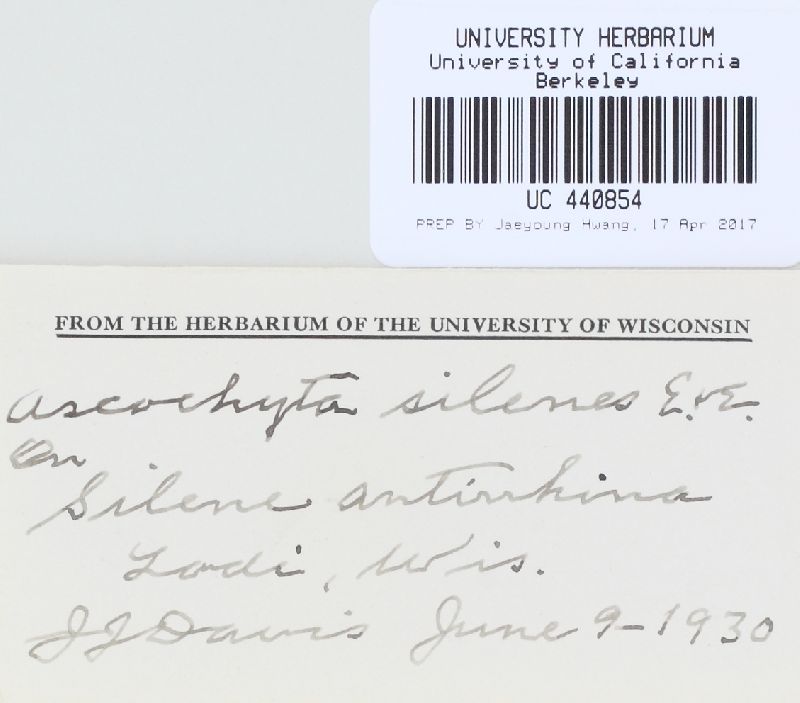 UNIVERSITY HERBARIUM
University of California
Berkeley
UC 440854
PREP BY Jaeyoung Hwang, 17 Apr 2017
FROM THE HERBARIUM OF THE UNIVERSITY OF WISCONSIN
Ascochyta silenes E. & E.
On
Silene antirrhina
Lodi, Wis.
J J Davis June 9-1930